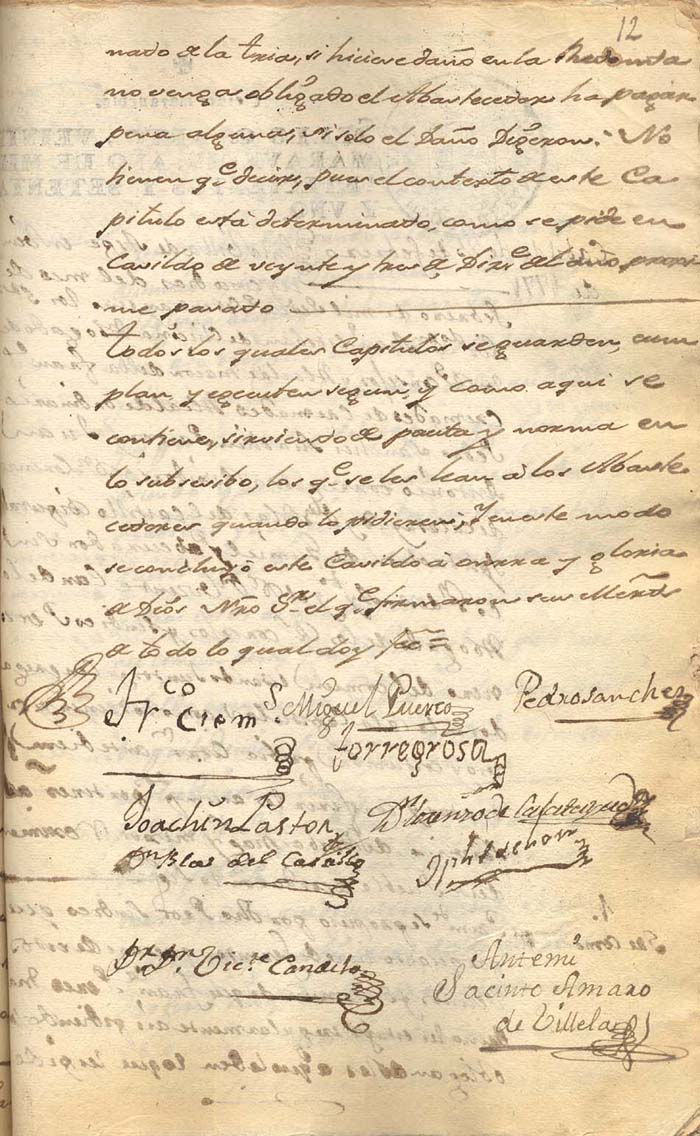 12
nado de la tria, si hiciere daño en la Redonda
no venga obligado el Abastecedor ha pagar
pena alguna, si solo el Daño Digeron: No
tienen q.e decir, pues el contexto de este Ca
pitulo està determinado, como se pide en
Cavildo de veynte y tres de Dix.e del año proxi
mo pasado
todos los quales Capitulos se guarden, cum
plan, y egecuten segun, y como aqui se
contiene, sirviendo de pauta y norma en
lo subsesibo, los q.e se les lean à los Abaste
cedores quando lo pidieren; Y en este modo
se concluyó este Cavildo à onrra y gloria
de Dios Nro S.r el q.e firmaron sus Merc̃ds
de todo lo qual doy fee =
Fr.co Ciem
S. Miguel Puerto
Torregrosa
Pedro Sanchez
Joachin Pastor
D.n Lorenzo de
D.n Blas del Castillo
D.r D.n Vic.te Candela
Antemi
Jacinto Amaro
de Villela